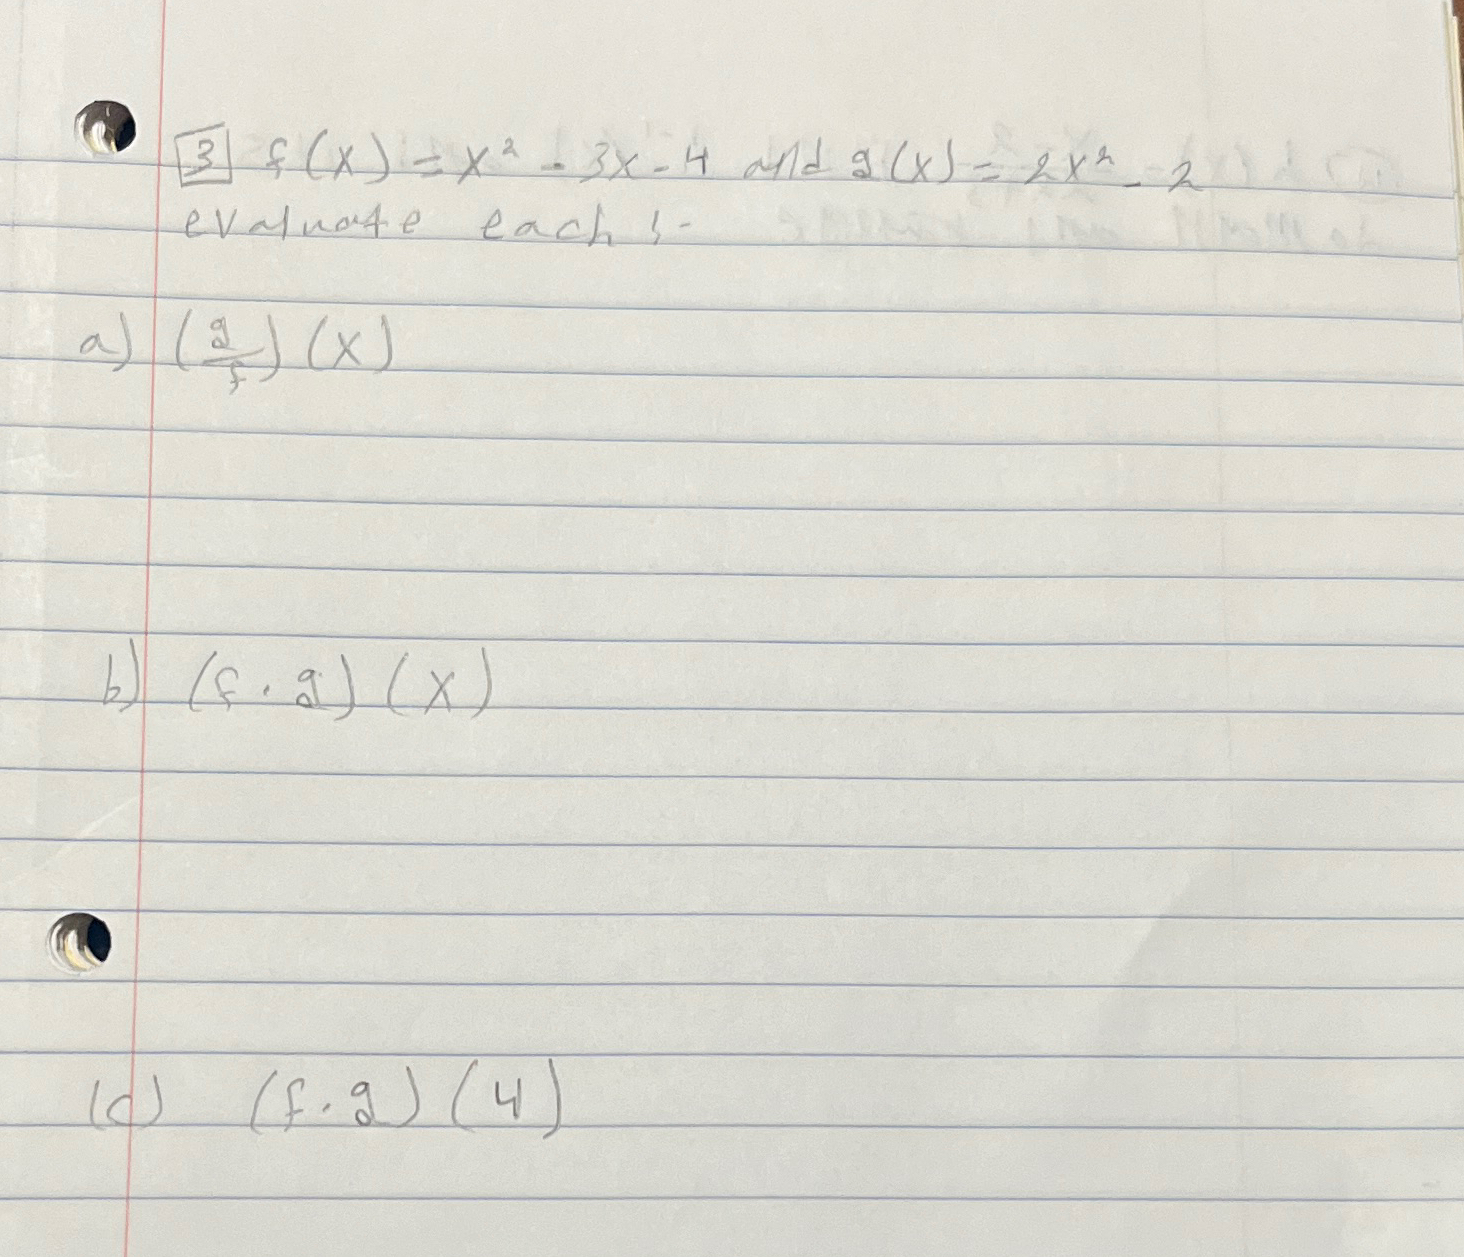 3 f(x) = x² - 3x - 4 and g(x) = 2x² - 2
evaluate each :-
a) (g/f) (x)
b) (f · g) (x)
(c) (f · g) (4)